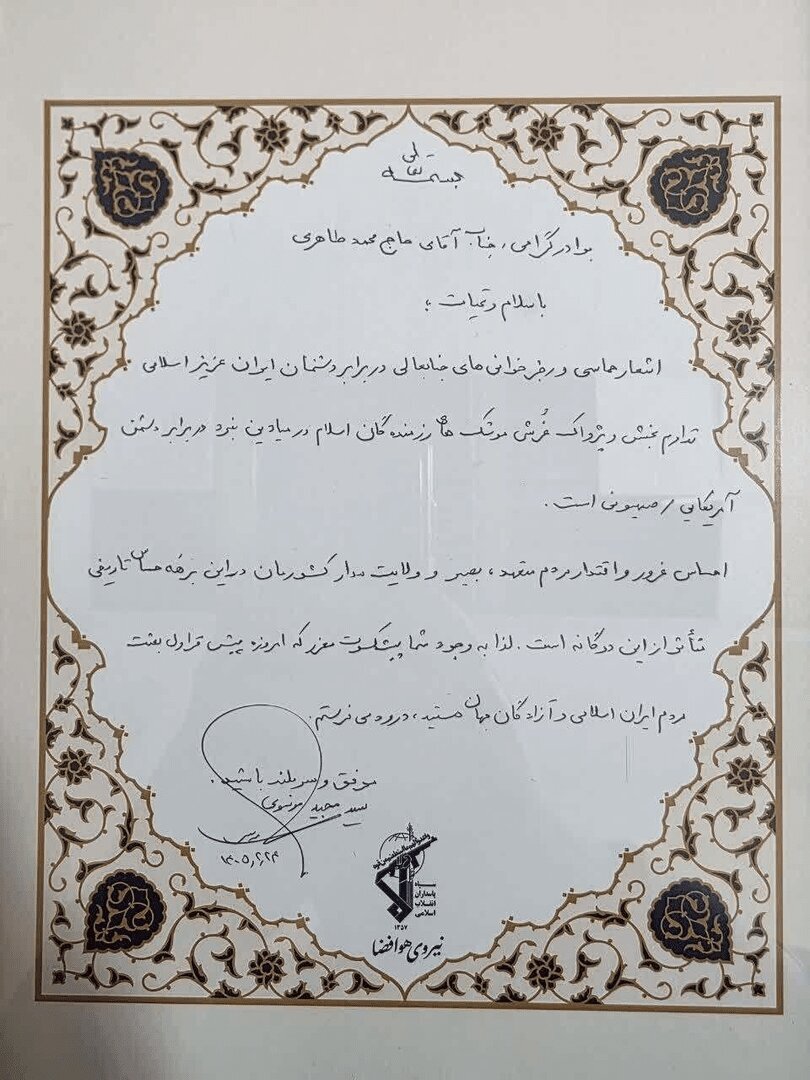 بسمه تعالی
برادر گرامی، جناب آقای حاج محمد طاهری
با سلام و تحیات؛
اشعار حماسی و رجزخوانی‌های جنابعالی در برابر دشمنان ایران عزیز اسلامی
تداوم بخش و پژواک غُرش موشک های رزمندگان اسلام در میادین نبرد در برابر دشمن
آمریکایی / صهیونی است.
احساس غرور و اقتدار مردم متعهد، بصیر و ولایت مدار کشورمان در این برهه حساس تاریخی
متأثر از این دوگانه است. لذا به وجود شما پیشکسوت معزز که امروزه پیش قراول بعثت
مردم ایران اسلامی و آزادگان جهان هستید، درود می فرستم.
موفق و سربلند باشید.
سید مجید موسوی
۱۴۰۵,۲,۲۴
سپاه
پاسداران
انقلاب
اسلامی
۱۳۵۷
نیروی هوافضا